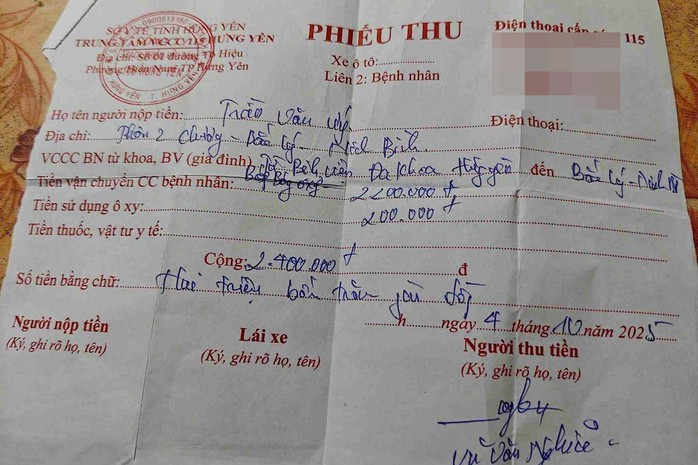 SỞ Y TẾ TỈNH HƯNG YÊN
TRUNG TÂM VCCC 115 HƯNG YÊN
Địa chỉ: Số 01 đường Tô Hiệu
Phường Hiến Nam TP Hưng Yên
PHIẾU THU
Xe ô tô:
Liên 2: Bệnh nhân
Điện thoại cấp 115
Họ tên người nộp tiền: Trần Văn
Điện thoại:
Địa chỉ: Thôn 2 - Bắc Lý - Ninh Bình
VCCC BN từ khoa, BV (gia đình) Bệnh viện Đa Khoa Hưng yên đến Bắc Lý - Ninh
Tiền vận chuyển CC bệnh nhân: 2200.000 đ
Tiền sử dụng ô xy: 200.000 đ
Tiền thuốc, vật tư y tế:
Cộng: 2.400.000 đ đ
Số tiền bằng chữ: Hai triệu bốn trăm đồng
h ngày 4 tháng 10 năm 2025
Người nộp tiền
(Ký, ghi rõ họ, tên)
Lái xe
(Ký, ghi rõ họ, tên)
Người thu tiền
(Ký, ghi rõ họ, tên)
Vũ Văn